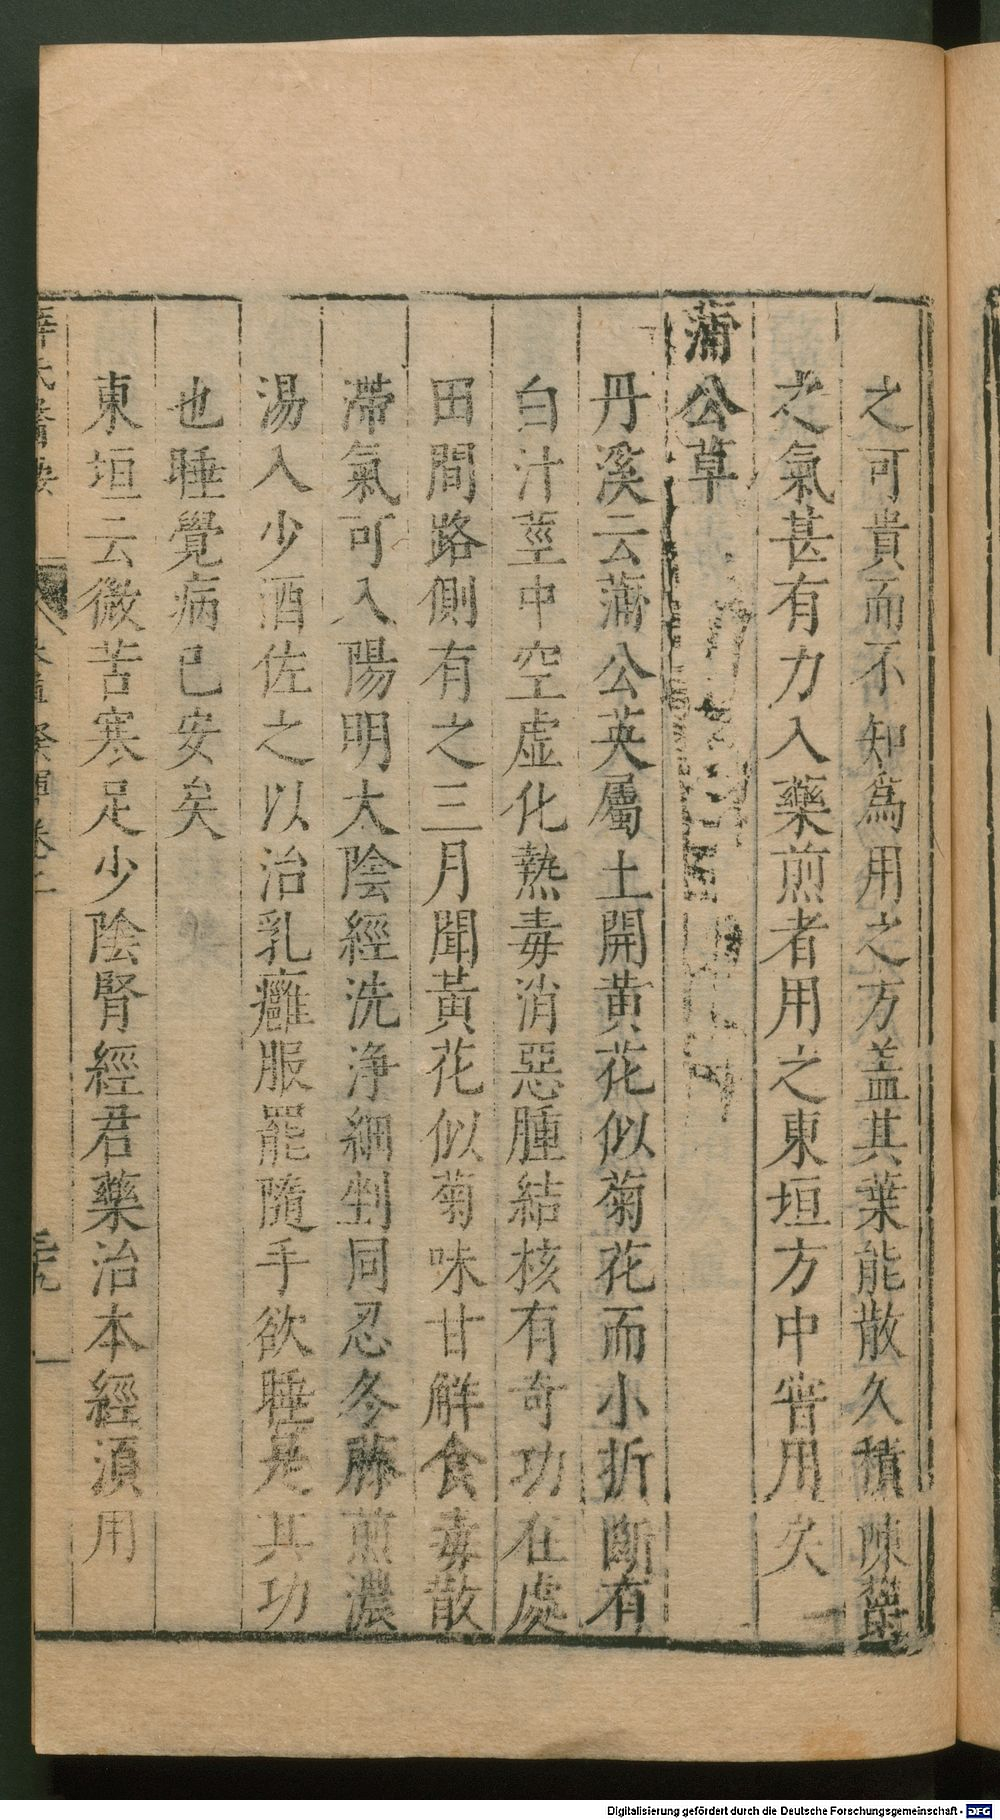 之可貴而不知為用之方盖其葉能散久積陳鬱
之氣甚有力入藥煎者用之東垣方中甞用矣
蒲公草
丹溪云蒲公英屬土開黄花似菊花而小折斷有
白汁莖中空虚化熱毒消惡腫結核有竒功在處
田間路側有之三月聞黃花似菊味甘解食毒散
滯氣可入陽明太陰經洗浄細剉同忍冬藤煎濃
湯入少酒佐之以治乳癰服罷隨手欲睡是其功
也睡覺病已安矣
東垣云微苦寒足少陰腎經君藥治本經湏用
薛氏醫按 本草發揮卷二
Digitalisierung gefördert durch die Deutsche Forschungsgemeinschaft - DFG